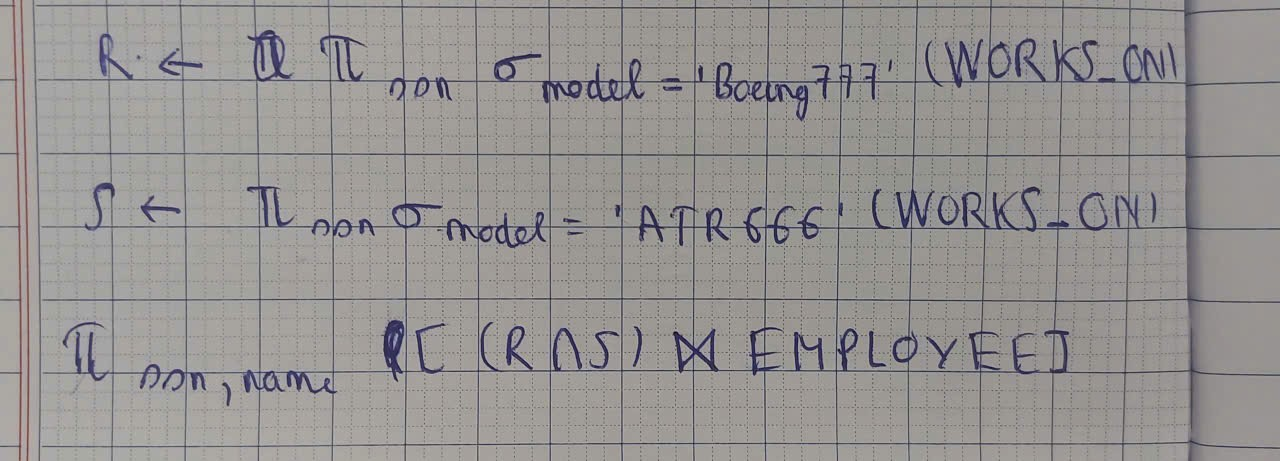 R ← π ssn σ model = 'Boeing777' (WORKS_ON)
S ← π ssn σ model = 'ATR666' (WORKS_ON)
π ssn, name [ (R ∩ S) ⋈ EMPLOYEE]